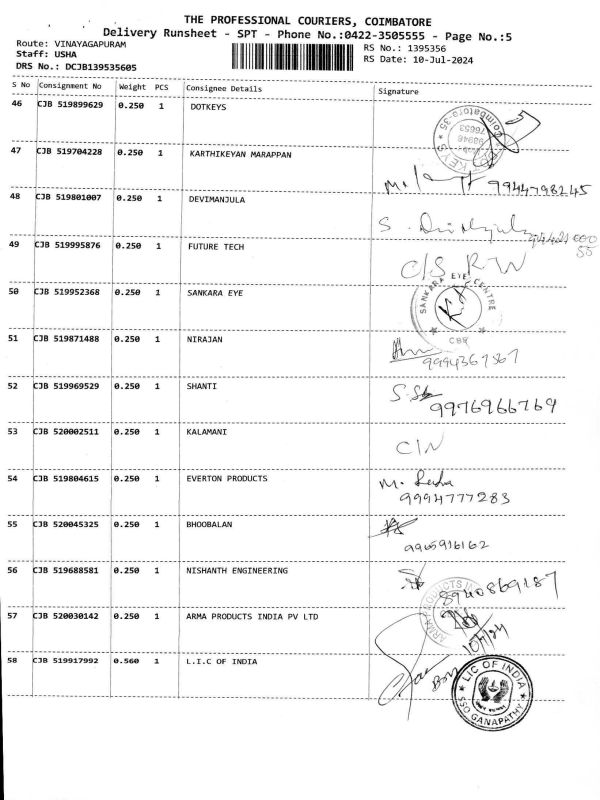 THE PROFESSIONAL COURIERS, COIMBATORE
Delivery Runsheet - SPT - Phone No.:0422-3505555 - Page No.:5
Route: VINAYAGAPURAM
Staff: USHA
DRS No.: DCJB139535605
RS No.: 1395356
RS Date: 10-Jul-2024
S No Consignment No Weight PCS Consignee Details Signature
46 CJB 519899629 0.250 1 DOTKEYS
47 CJB 519704228 0.250 1 KARTHIKEYAN MARAPPAN
9944798245
48 CJB 519801007 0.250 1 DEVIMANJULA
S.
49 CJB 519995876 0.250 1 FUTURE TECH
C/S R W
50 CJB 519952368 0.250 1 SANKARA EYE
SANKARA EYE CENTRE
CBE
51 CJB 519871488 0.250 1 NIRAJAN
9994367367
52 CJB 519969529 0.250 1 SHANTI
9976966769
53 CJB 520002511 0.250 1 KALAMANI
C/N
54 CJB 519804615 0.250 1 EVERTON PRODUCTS
M.
9994777283
55 CJB 520045325 0.250 1 BHOOBALAN
9965916162
56 CJB 519688581 0.250 1 NISHANTH ENGINEERING
8940869187
57 CJB 520030142 0.250 1 ARMA PRODUCTS INDIA PV LTD
ARMA PRODUCTS
10/7/24
58 CJB 519917992 0.560 1 L.I.C OF INDIA
LIC OF INDIA
SSO GANAPATHY